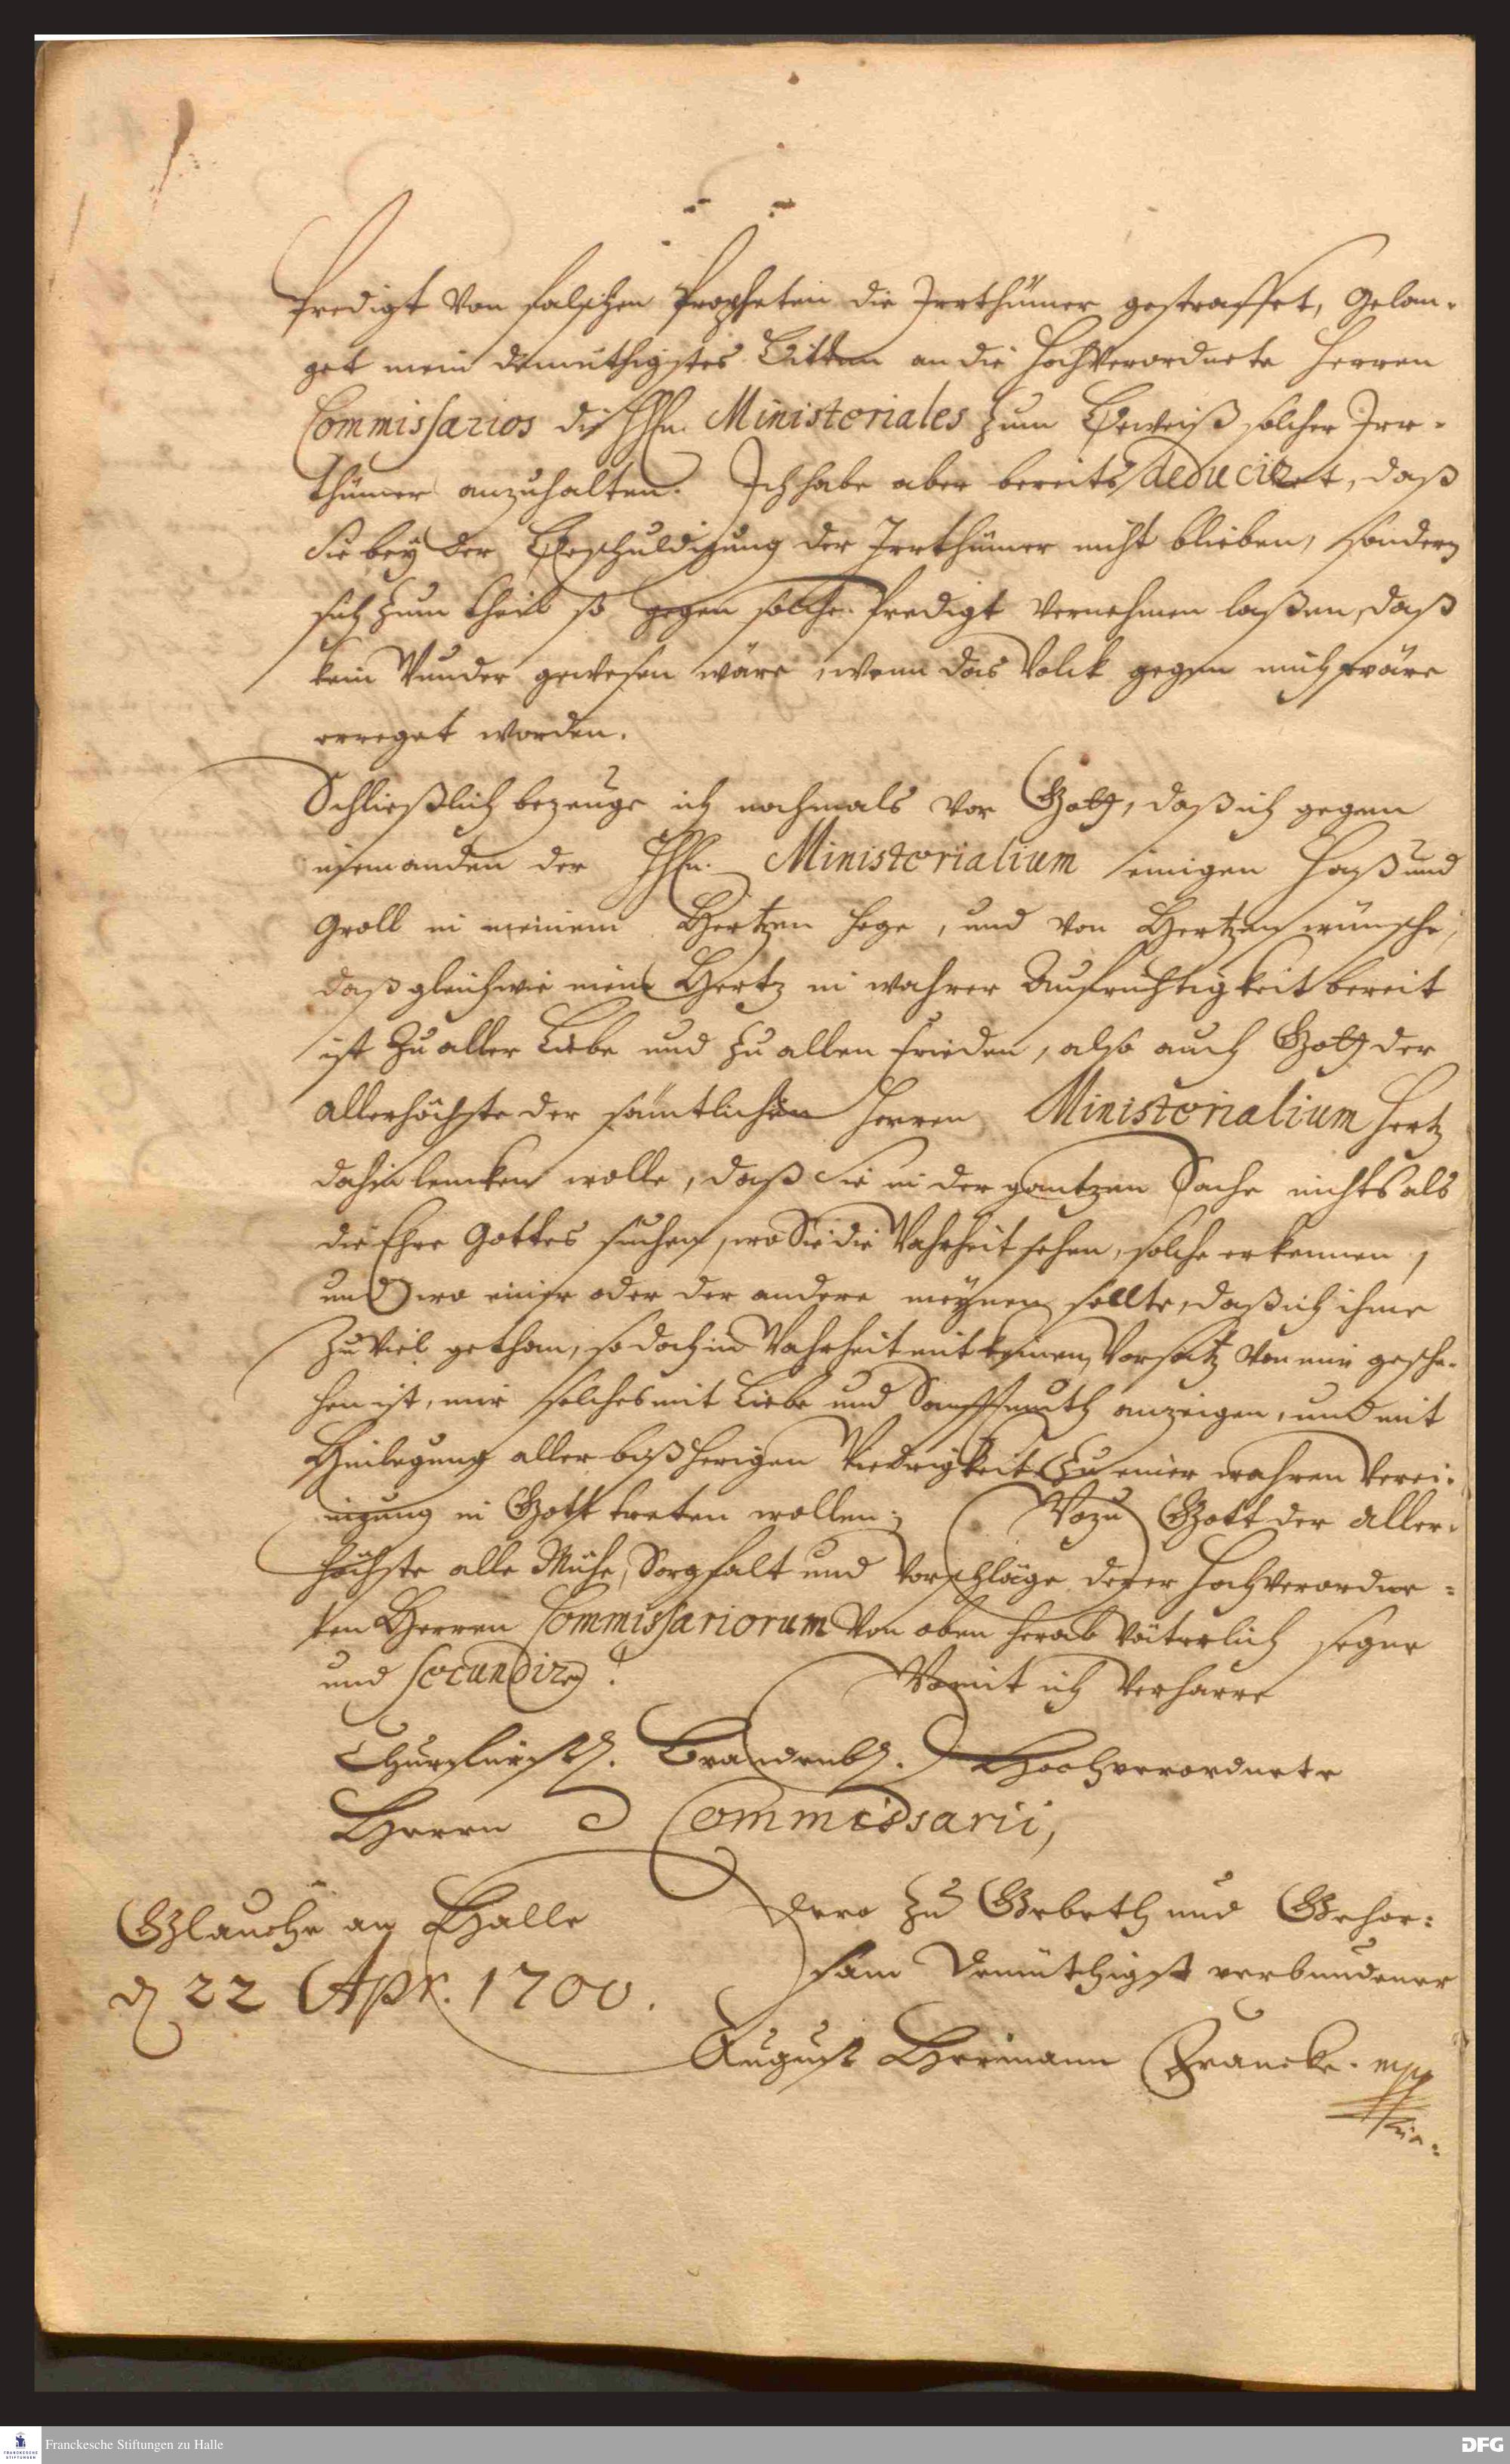 Predigt von falschen Propheten die Irrthümer gestraffet, Gelan-
get mein demüthigstes Bitten an die Hochverordnete Herren
Commissarios die HHn. Ministeriales zum Beweiß solcher Irr-
thümer anzuhalten. Ich habe aber bereits deduciret, daß
Sie bey der Beschuldigung der Irrthümer nicht blieben, sondern
sich zum theil so gegen solche Predigt vernehmen laßen, daß
kein Wunder gewesen wäre, wenn das Volck gegen mich wäre
erreget worden.
Schließlich bezeuge ich nochmals vor Gott, daß ich gegen
niemanden der HHn. Ministerialium einigen Haß und
Groll in meinem Hertzen hege, und von Hertzen wünsche,
daß gleichwie mein Hertz in wahrer Aufrichtigkeit bereit
ist zu aller Liebe und zu allen Frieden, also auch Gott der
Allerhöchste der sämtlichen Herren Ministerialium Hertz
dahin lencken wolle, daß Sie in der gantzen Sache nichts als
die Ehre Gottes suchen, wo Sie die Wahrheit sehen, solche erkennen,
und wo einer oder der andere meynen sollte, daß ich ihme
zu viel gethan, so doch in Wahrheit mit keinem Vorsatz von mir gesche-
hen ist, mir solches mit Liebe und Sanfftmuth anzeigen, und mit
Beilegung aller bißherigen Wiedrigkeit zu einer wahren Verei-
nigung in Gott treten wollen; Wozu Gott der Aller-
höchste alle Mühe, Sorgfalt und Vorschläge derer Hochverordne-
ten Herren Commissariorum von oben herab väterlich segne
und secundire! Womit ich verharre
Churfürstl. Brandenbl. Hochverordnete
Herrn Commissarii,
Glaucha an Halle
d 22 Apr. 1700.
Dero zu Gebeth und Gehor-
sam demüthigst verbundener
August Hermann Francke. mpp
Franckesche Stiftungen zu Halle
DFG